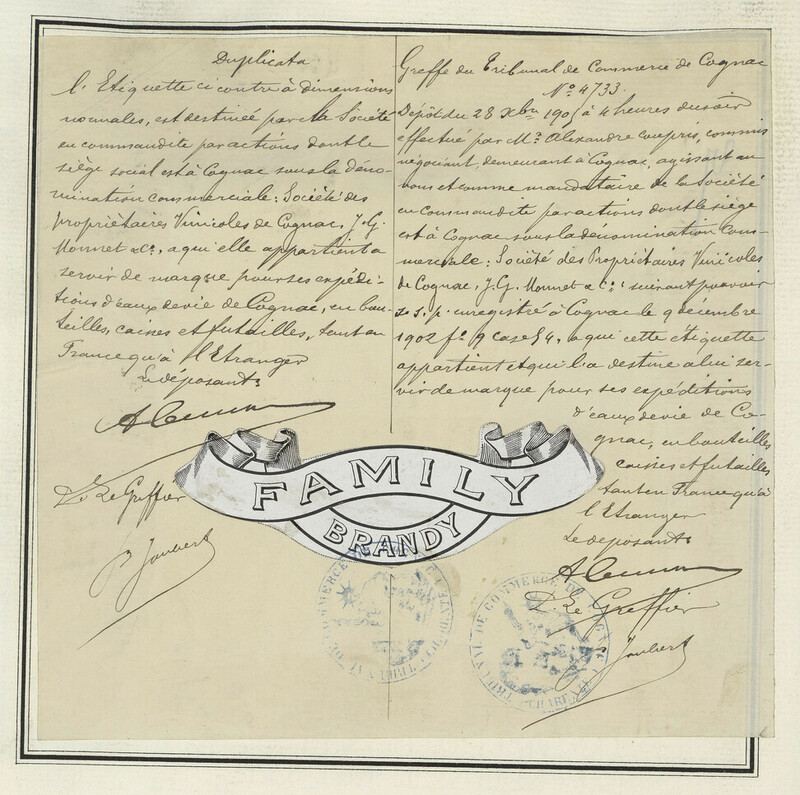 Duplicata
L'Etiquette ci contre à dimensions
normales, est destinée par la Société
en commandite par actions dont le
siège social est à Cognac sous la déno-
mination commerciale: Société des
Propriétaires Vinicoles de Cognac, J.G.
Monnet & Co, a qui elle appartient a
servir de marque pour ses expédi-
tions d'eaux de vie de Cognac, en bou-
teilles, caisses et futailles, tant en
France qu'à l'Etranger
Le déposant:
Le Greffier
Joubert
Greffe du Tribunal de Commerce de Cognac
No 4733.
Dépôt du 28 Xbre à 4 heures du soir
effectué par Mr Alexandre, commis
négociant, demeurant à Cognac, agissant au
nom et comme mandataire de la Société
en Commandite par actions dont le siège
est à Cognac sous la dénomination Com-
merciale: Société des Propriétaires Vinicoles
de Cognac, J.G. Monnet & Co: suivant pouvoir
s. s. p. enregistré à Cognac le 9 décembre
1902 fo 9 case 54, a qui cette étiquette
appartient et qui l'a destine a lui ser-
vir de marque pour ses expéditions
d'eaux de vie de Co-
gnac, en bouteilles
caisses et futailles
tant en France qu'à
l'Etranger
Le déposant:
Le Greffier
Joubert
FAMILY
BRANDY
TRIBUNAL DE COMMERCE
TRIBUNAL DE COMMERCE DE COGNAC
CHARENTE